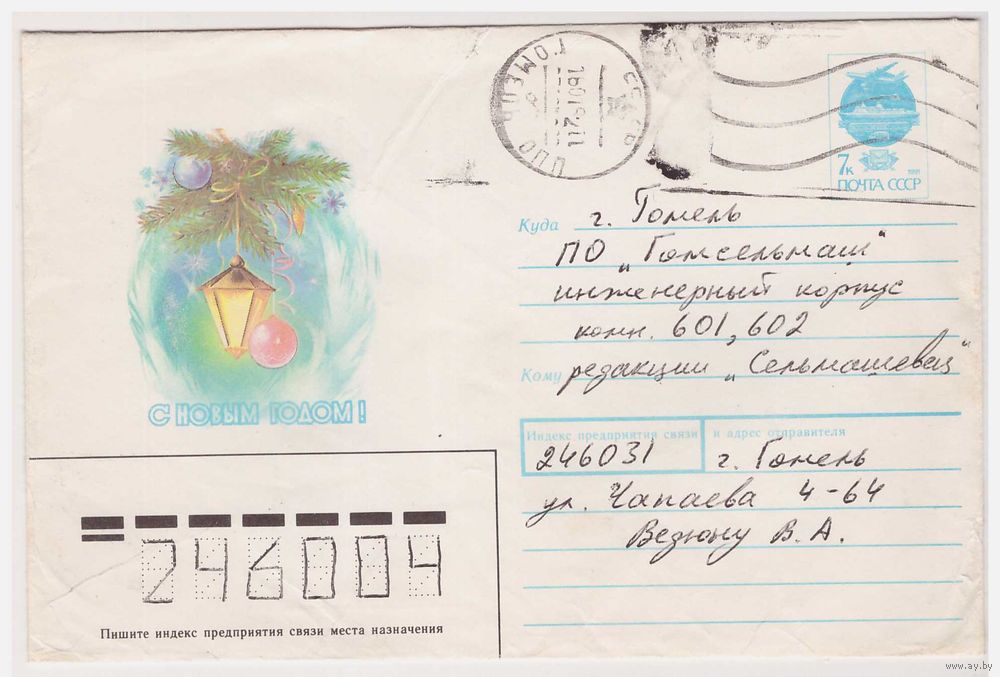 ГОМЕЛЬ
ЦПО
7к
1991
ПОЧТА СССР
Куда г. Гомель
ПО „Гомсельмаш“
инженерный корпус
комн. 601, 602
Кому редакции „Сельмашевец“
С НОВЫМ ГОДОМ!
Индекс предприятия связи и адрес отправителя
246031 г. Гомель
ул. Чапаева 4-64
В. А.
246004
Пишите индекс предприятия связи места назначения
www.ay.by